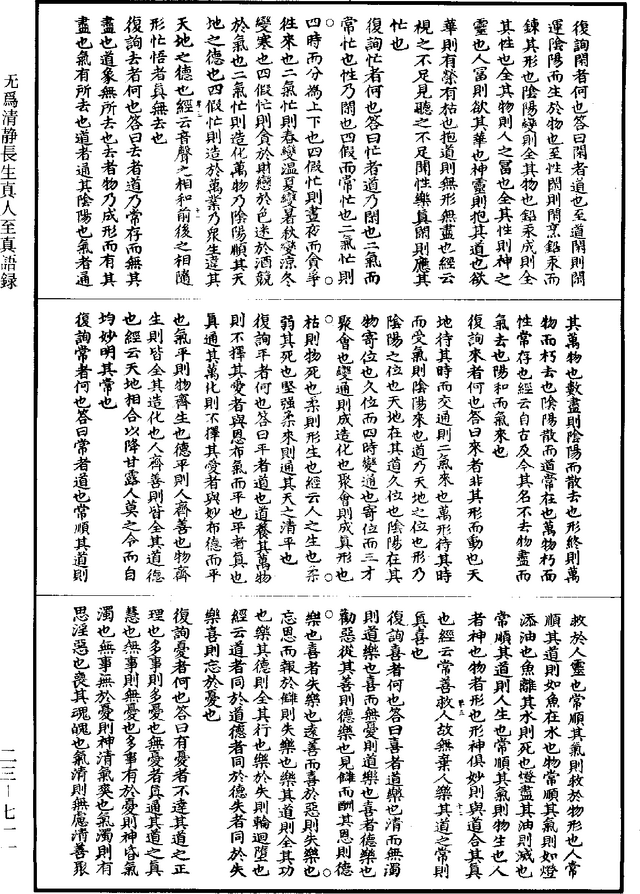 復詢閑者何也答曰閑者道也至道閑則閑
運陰陽而生於物也至性閑則閑烹鉛汞而
鍊其形也陰陽變則全其物也鉛汞成則全
其性也全其物則人之冨也全其性則神之
靈也人冨則欲其華也神靈則抱其道也欲
華則有榮有枯也抱道則無形無盡也經云
視之不足見聽之不足聞性樂真閑則應其
忙也
復詢忙者何也答曰忙者道乃閑也二氣而
常忙也性乃閑也四假而常忙也二氣忙則
四時而分為上下也四假忙則晝夜而貪爭
往來也二氣忙則春變溫夏變暑秋變涼冬
變寒也四假忙則貪於財戀於色迷於酒競
於氣也二氣忙則造化萬物乃陰陽順其天
地之德也四假忙則造於萬業乃衆生違其
天地之德也經云音聲之相和前後之相隨
形忙悟者真無去也
復詢去者何也答曰去者道乃常存而無其
盡也道象無所去也去者物乃成形而有其
盡也氣有所去也道者通其陰陽也氣者通
其萬物也數盡則陰陽而散去也形終則萬
物而朽去也陰陽散而道常在也萬物朽而
性常存也經云自古及今其名不去物盡而
氣去也陽和而氣來也
復詢來者何也答曰來者非其形而動也天
地待其時而交通則二氣來也萬形待其時
而受氣則陰陽來也道乃天地之位也形乃
陰陽之位也天地在其道久位也陰陽在其
物寄位也久位而四時變通也寄位而三才
聚會也變通則成造化也聚會則成真形也
枯則物死也柔則形生也經云人之生也柔
弱其死也堅强柔來則通其天之清平也
復詢平者何也答曰平者道也道養其萬物
則不擇其愛者與恩布氣而平也平者真也
真通其萬化則不擇其愛者與妙布德而平
也氣平則物齊生也德平則人齊善也物齊
生則皆全其造化也人齊善則皆全其道德
也經云天地相合以降甘露人莫之令而自
均妙明其常也
復詢常者何也答曰常者道也常順其道則
救於人靈也常順其氣則救於物形也人常
順其道則如魚在水也物常順其氣則如燈
添油也魚離其水則死也燈盡其油則滅也
常順其道則人生也常順其氣則物生也人
者神也物者形也形神俱妙則與道合其真
也經云常善救人故無棄人樂其道之常則
真喜也
復詢喜者何也答曰喜者道樂也清而無濁
則道樂也喜而無憂則道樂也喜者德樂也
勸惡從其善則德樂也見雠而酬其恩則德
樂也喜者失樂也遠善而喜於惡則失樂也
忘恩而報於雠則失樂也樂其道則全其功
也樂其德則全其行也樂於失則輪迴墮也
經云道者同於道德者同於德失者同於失
樂喜則忘於憂也
復詢憂者何也答曰有憂者不達其道之正
理也多事則多憂也無憂者真通其道之真
慧也無事則無憂也多事有於憂則神昏氣
濁也無事無於憂則神清氣爽也氣濁則有
思淫惡也喪其魂魄也氣清則無慮清善聚
无為清静長生真人至真語録
二三—七一一